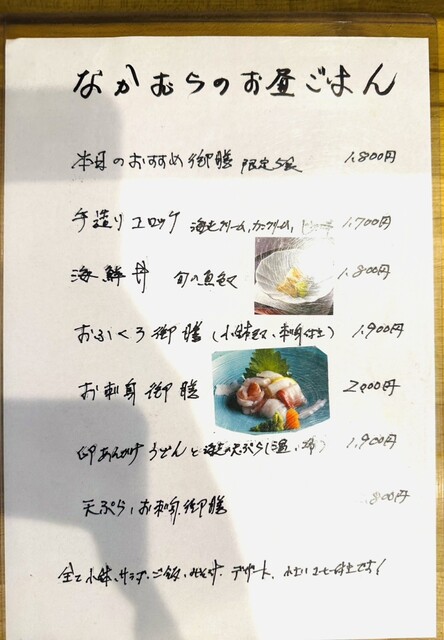 なかむらのお昼ごはん
本日のおすすめ御膳 限定5食 1,800円
手造りコロッケ 海老クリーム、カニクリーム、 1,700円
海鮮丼 旬の魚 1,800円
おふくろ御膳 (小鉢 、お刺身付) 1,900円
お刺身御膳 2,000円
卵あんかけうどんと海老の天ぷら(温、冷) 1,900円
天ぷら、お刺身御膳 800円
全て小鉢、サラダ、ご飯、みそ汁、デザート、 コーヒー付です!